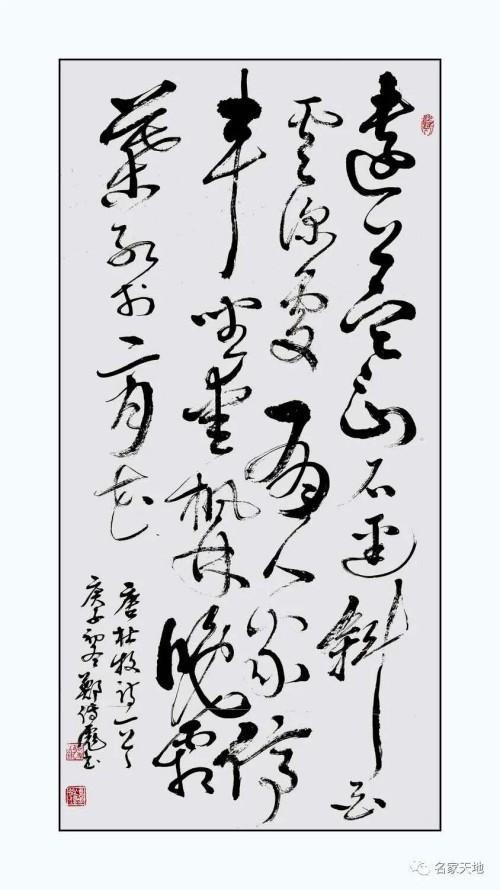 遠上寒山石徑斜白
雲深處有人家停
車坐愛楓林晚霜
葉紅於二月花
唐杜牧詩一首
庚子初冬鄭傳彪書
名家天地